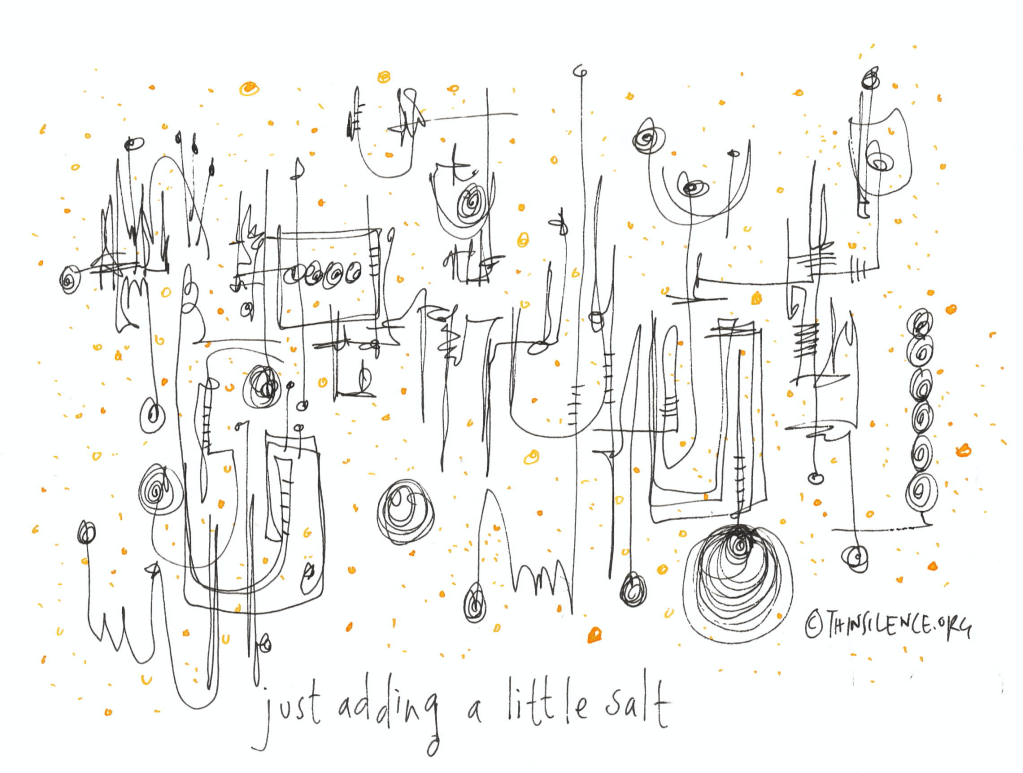 ©THINSILENCE.ORG
just adding a little salt